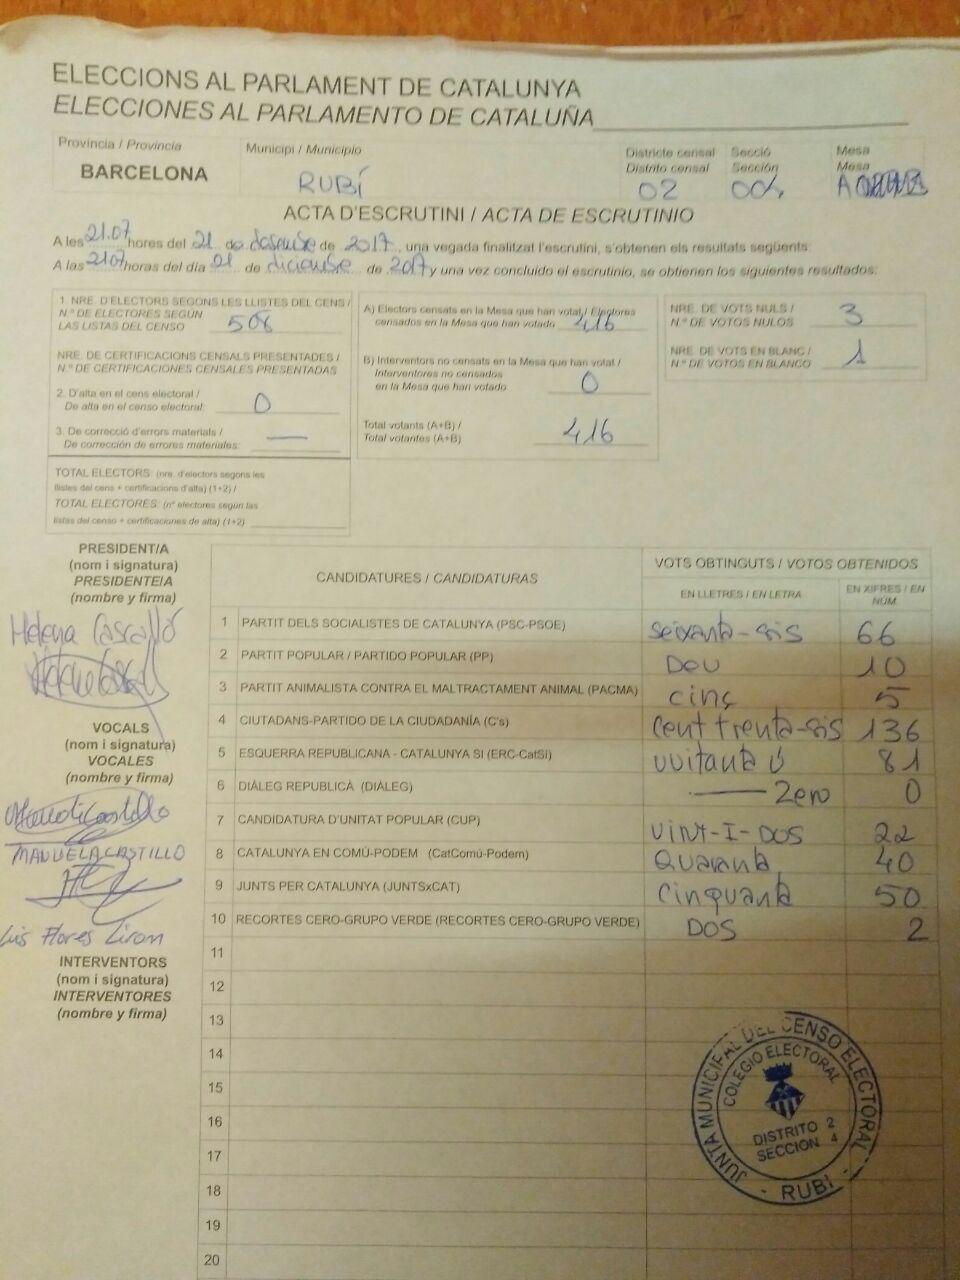 ELECCIONS AL PARLAMENT DE CATALUNYA
ELECCIONES AL PARLAMENTO DE CATALUÑA
Província / Provincia
BARCELONA
Municipi / Municipio
RUBÍ
Districte censal
Distrito censal
02
Secció
Sección
004
Mesa
Mesa
A
ACTA D'ESCRUTINI / ACTA DE ESCRUTINIO
A les 21.07 hores del 21 de desembre de 2017, una vegada finalitzat l'escrutini, s'obtenen els resultats següents:
A las 21.07 horas del día 21 de diciembre de 2017 y una vez concluido el escrutinio, se obtienen los siguientes resultados:
1. NRE. D'ELECTORS SEGONS LES LLISTES DEL CENS /
N.º DE ELECTORES SEGÚN
LAS LISTAS DEL CENSO 506
NRE. DE CERTIFICACIONS CENSALS PRESENTADES /
N.º DE CERTIFICACIONES CENSALES PRESENTADAS
2. D'alta en el cens electoral /
De alta en el censo electoral: 0
3. De correcció d'errors materials /
De corrección de errores materiales: —
TOTAL ELECTORS: (nre. d'electors segons les
llistes del cens + certificacions d'alta) (1+2) /
TOTAL ELECTORES: (nº electores según las
listas del censo + certificaciones de alta) (1+2)
A) Electors censats en la Mesa que han votat / Electores
censados en la Mesa que han votado 416
B) Interventors no censats en la Mesa que han votat /
Interventores no censados
en la Mesa que han votado 0
Total votants (A+B) /
Total votantes (A+B) 416
NRE. DE VOTS NULS /
N.º DE VOTOS NULOS 3
NRE. DE VOTS EN BLANC /
N.º DE VOTOS EN BLANCO 1
PRESIDENT/A
(nom i signatura)
PRESIDENTE/A
(nombre y firma)
Helena Cascalló
VOCALS
(nom i signatura)
VOCALES
(nombre y firma)
MANUELA CASTILLO
Luis Flores Liron
INTERVENTORS
(nom i signatura)
INTERVENTORES
(nombre y firma)
CANDIDATURES / CANDIDATURAS
VOTS OBTINGUTS / VOTOS OBTENIDOS
EN LLETRES / EN LETRA
EN XIFRES / EN NÚM.
1 PARTIT DELS SOCIALISTES DE CATALUNYA (PSC-PSOE) seixanta-sis 66
2 PARTIT POPULAR / PARTIDO POPULAR (PP) Deu 10
3 PARTIT ANIMALISTA CONTRA EL MALTRACTAMENT ANIMAL (PACMA) cinç 5
4 CIUTADANS-PARTIDO DE LA CIUDADANÍA (C's) Cent trenta-sis 136
5 ESQUERRA REPUBLICANA - CATALUNYA SI (ERC-CatSI) vuitanta ú 81
6 DIÀLEG REPUBLICÀ (DIÀLEG) — Zero 0
7 CANDIDATURA D'UNITAT POPULAR (CUP) VINT-I-DOS 22
8 CATALUNYA EN COMÚ-PODEM (CatComú-Podem) Quaranta 40
9 JUNTS PER CATALUNYA (JUNTSxCAT) Cinquanta 50
10 RECORTES CERO-GRUPO VERDE (RECORTES CERO-GRUPO VERDE) DOS 2
11
12
13
14
15
16
17
18
19
20
JUNTA MUNICIPAL DEL CENSO ELECTORAL
COLEGIO ELECTORAL
DISTRITO 2
SECCION 4
- RUBÍ -